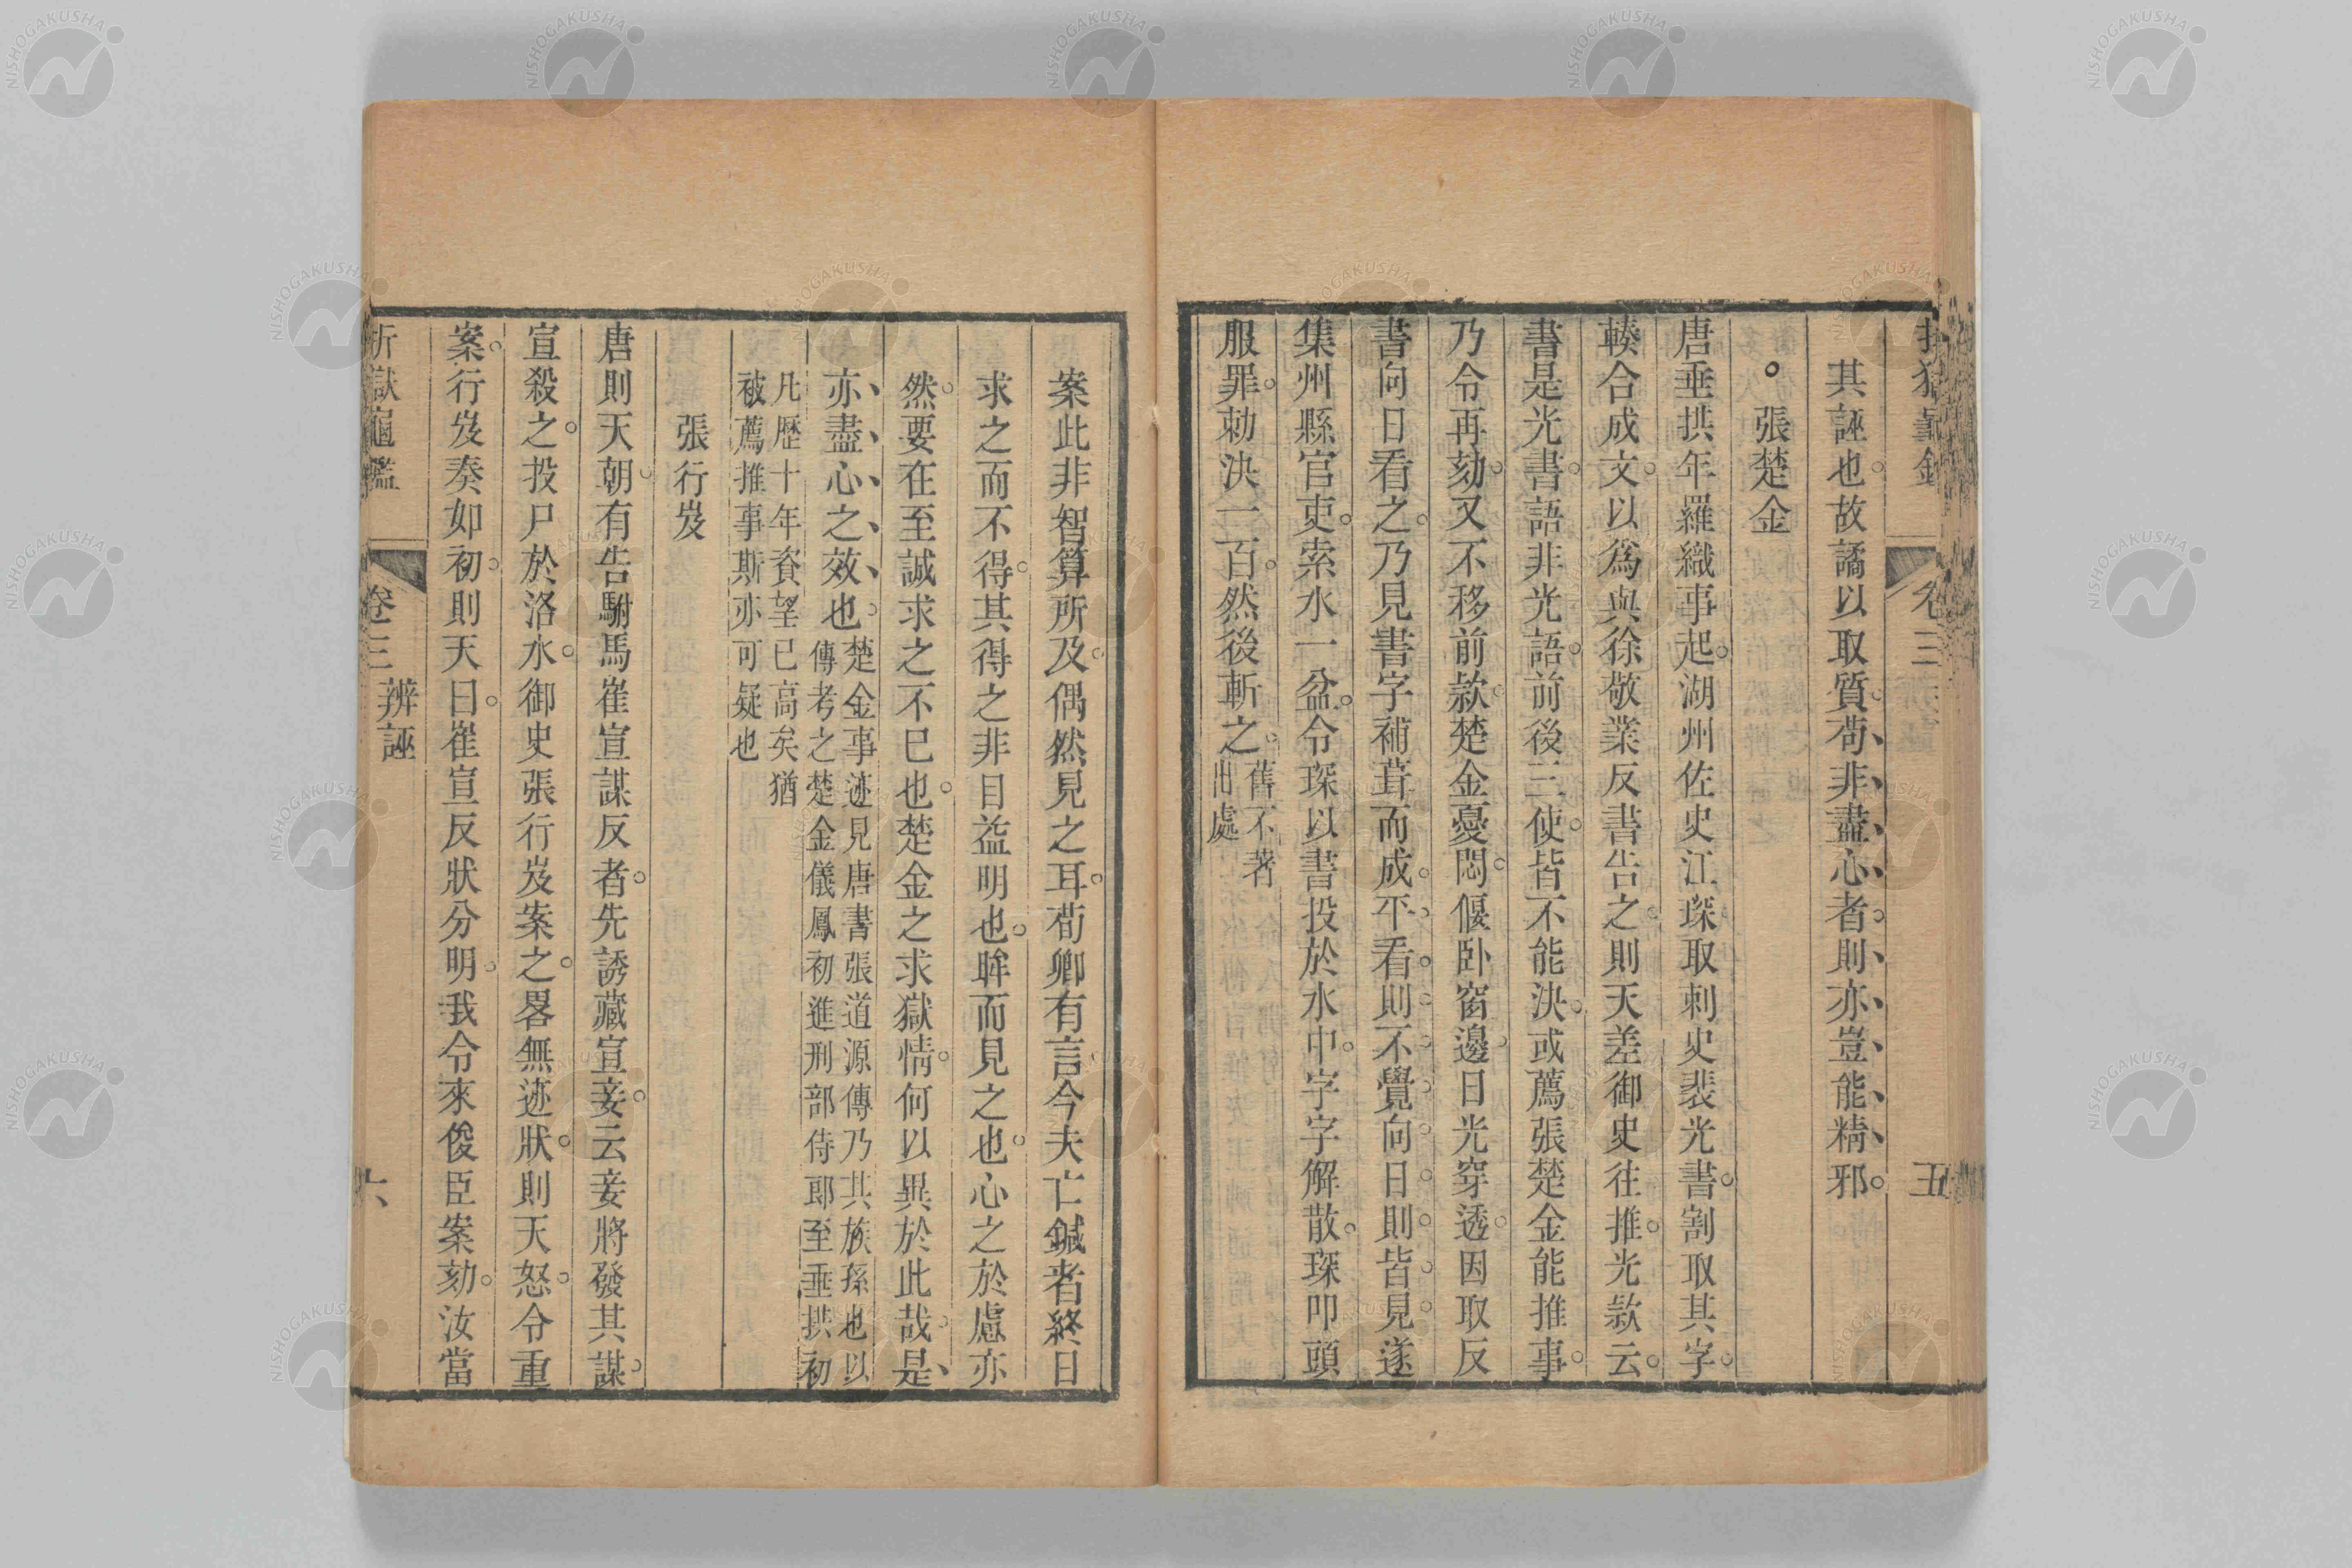 折獄龜鑑
卷三
五
其誣也故譎以取質苟非盡心者則亦豈能精邪
張楚金
唐垂拱年羅織事起湖州佐史江琛取刺史裴光書割取其字
輳合成文以爲與徐敬業反書告之則天差御史往推光款云
書是光書語非光語前後三使皆不能決或薦張楚金能推事
乃令再劾又不移前款楚金憂悶偃卧窗邊日光穿透因取反
書向日看之乃見書字補葺而成平看則不覺向日則皆見遂
集州縣官吏索水一盆令琛以書投於水中字字解散琛叩頭
服罪勅決一百然後斬之
舊不著
出處
案此非智算所及偶然見之耳荀卿有言今夫亡鍼者終日
求之而不得其得之非目益明也眸而見之也心之於慮亦
然要在至誠求之不已也楚金之求獄情何以異於此哉是
亦盡心之效也
楚金事迹見唐書張道源傳乃其族孫也以
傳考之楚金儀鳳初進刑部侍郎至垂拱初
凡歷十年資望已高矣猶
被薦推事斯亦可疑也
張行岌
唐則天朝有告駙馬崔宣謀反者先誘藏宣妾云妾將發其謀
宣殺之投尸於洛水御史張行岌案之畧無迹狀則天怒令重
案行岌奏如初則天曰崔宣反狀分明我令來俊臣案劾汝當
折獄龜鑑
卷三
辨誣
六
NISHOGAKUSHA